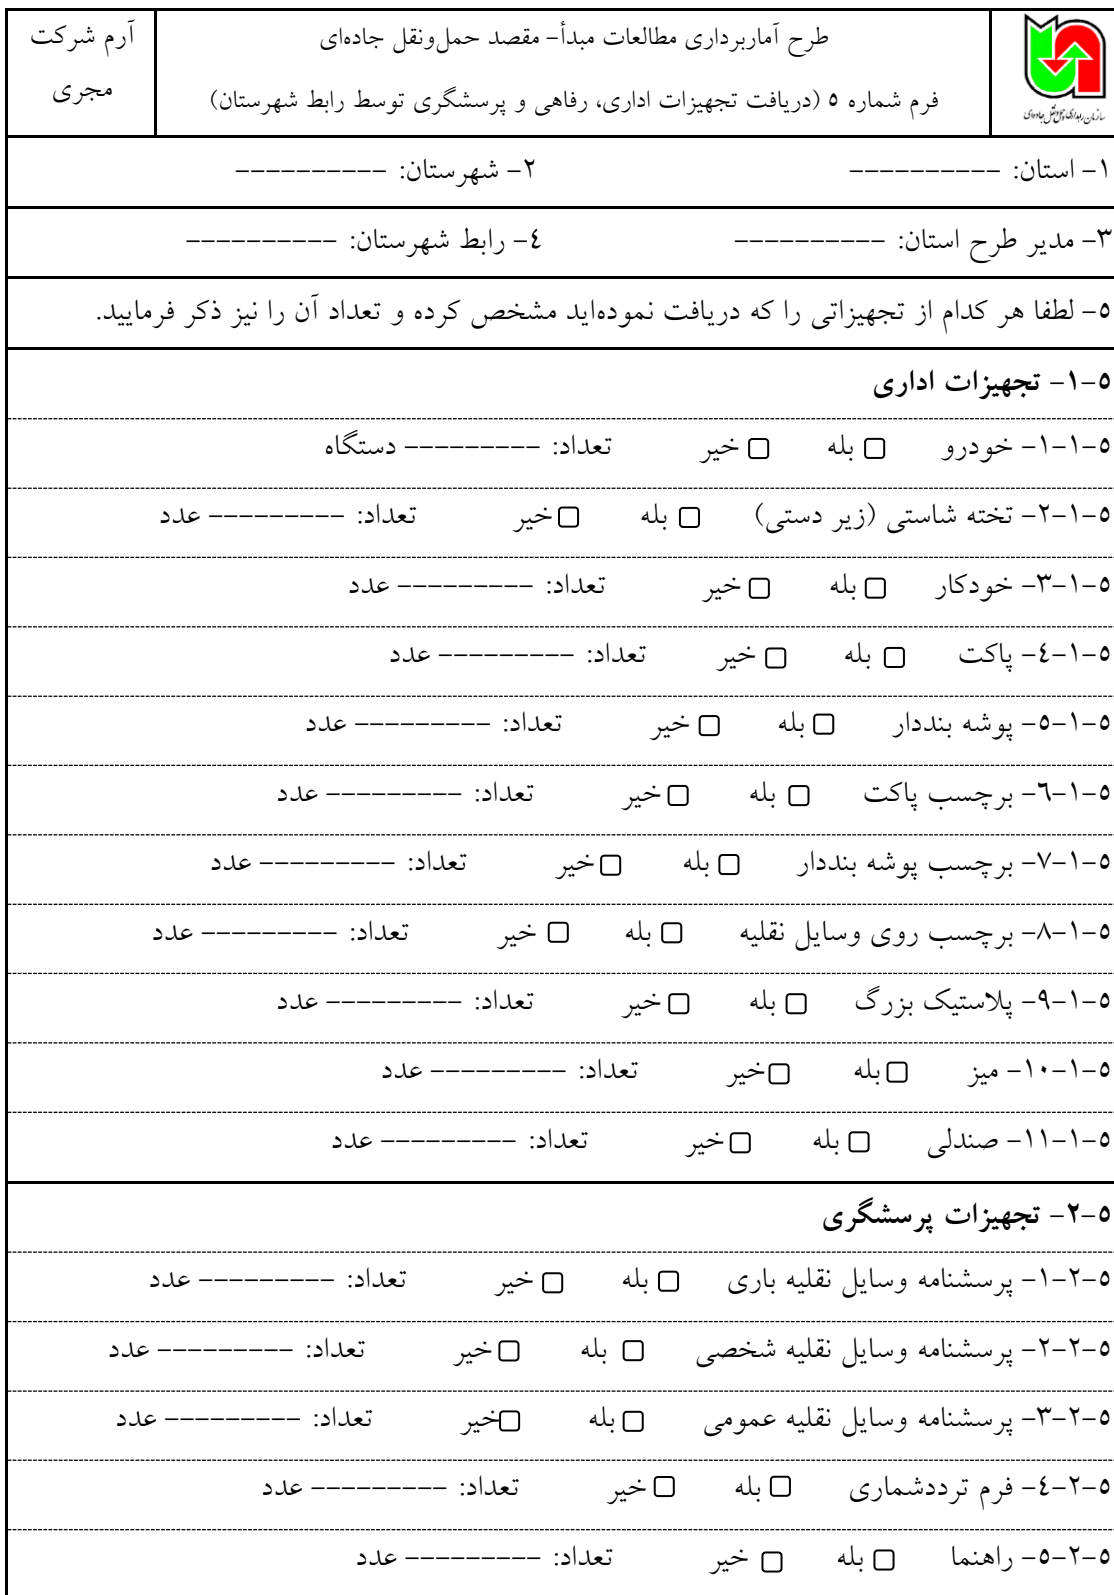 طرح آماربرداری مطالعات مبدأ- مقصد حمل‌ونقل جاده‌ای
فرم شماره ۵ (دریافت تجهیزات اداری، رفاهی و پرسشگری توسط رابط شهرستان)
آرم شرکت
مجری
سازمان راهداری و حمل و نقل جاده‌ای
۱- استان: ---------- ۲- شهرستان: ----------
۳- مدیر طرح استان: ---------- ۴- رابط شهرستان: ----------
۵- لطفا هر کدام از تجهیزاتی را که دریافت نموده‌اید مشخص کرده و تعداد آن را نیز ذکر فرمایید.
۵-۱- تجهیزات اداری
۵-۱-۱- خودرو □ بله □ خیر تعداد: --------- دستگاه
۵-۱-۲- تخته شاستی (زیر دستی) □ بله □ خیر تعداد: --------- عدد
۵-۱-۳- خودکار □ بله □ خیر تعداد: --------- عدد
۵-۱-۴- پاکت □ بله □ خیر تعداد: --------- عدد
۵-۱-۵- پوشه بنددار □ بله □ خیر تعداد: --------- عدد
۵-۱-۶- برچسب پاکت □ بله □ خیر تعداد: --------- عدد
۵-۱-۷- برچسب پوشه بنددار □ بله □ خیر تعداد: --------- عدد
۵-۱-۸- برچسب روی وسایل نقلیه □ بله □ خیر تعداد: --------- عدد
۵-۱-۹- پلاستیک بزرگ □ بله □ خیر تعداد: --------- عدد
۵-۱-۱۰- میز □ بله □ خیر تعداد: --------- عدد
۵-۱-۱۱- صندلی □ بله □ خیر تعداد: --------- عدد
۵-۲- تجهیزات پرسشگری
۵-۲-۱- پرسشنامه وسایل نقلیه باری □ بله □ خیر تعداد: --------- عدد
۵-۲-۲- پرسشنامه وسایل نقلیه شخصی □ بله □ خیر تعداد: --------- عدد
۵-۲-۳- پرسشنامه وسایل نقلیه عمومی □ بله □ خیر تعداد: --------- عدد
۵-۲-۴- فرم ترددشماری □ بله □ خیر تعداد: --------- عدد
۵-۲-۵- راهنما □ بله □ خیر تعداد: --------- عدد